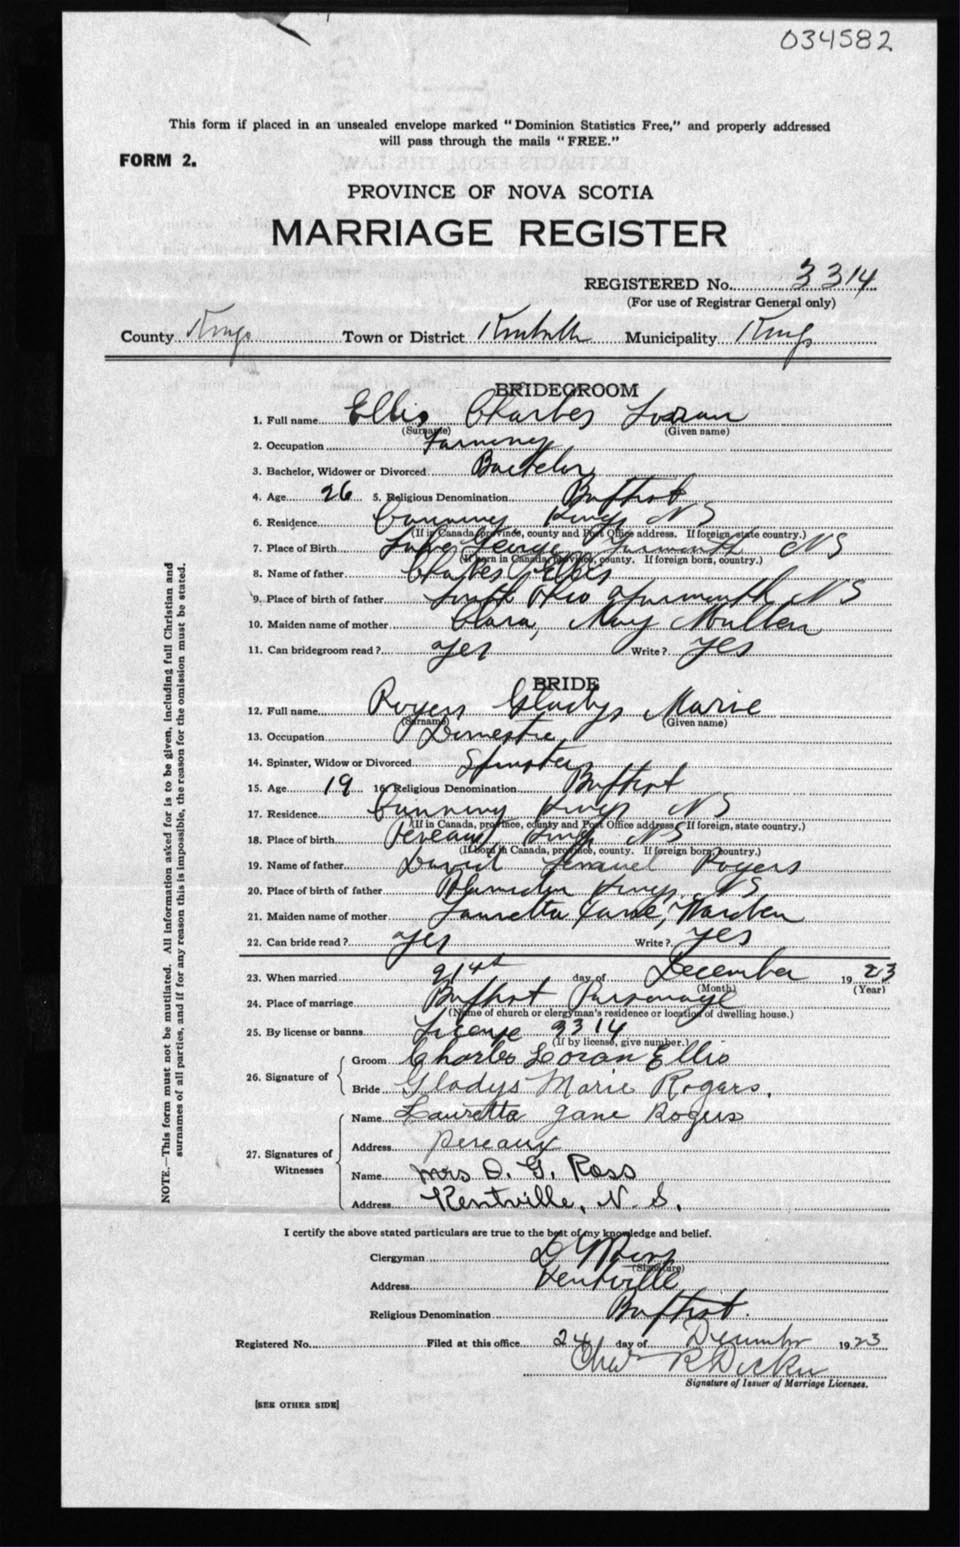 034582
This form if placed in an unsealed envelope marked "Dominion Statistics Free," and properly addressed
will pass through the mails "FREE."
FORM 2.
PROVINCE OF NOVA SCOTIA
MARRIAGE REGISTER
REGISTERED No. 3314
(For use of Registrar General only)
County Kings Town or District Kentville Municipality Kings
BRIDEGROOM
1. Full name Ellis Charles Loran
(Surname) (Given name)
2. Occupation Farming
3. Bachelor, Widower or Divorced Bachelor
4. Age 26 5. Religious Denomination Baptist
6. Residence Canning Kings NS
(If in Canada, province, county and Post Office address. If foreign, state country.)
7. Place of Birth Lake George Yarmouth NS
(If born in Canada, province, county. If foreign born, country.)
8. Name of father Charles Ellis
9. Place of birth of father South Ohio Yarmouth NS
10. Maiden name of mother Clara, May Moullen
11. Can bridegroom read? yes Write? yes
BRIDE
12. Full name Rogers Gladys Marie
(Surname) (Given name)
13. Occupation Domestic
14. Spinster, Widow or Divorced Spinster
15. Age 19 16. Religious Denomination Baptist
17. Residence Canning Kings NS
(If in Canada, province, county and Post Office address. If foreign, state country.)
18. Place of birth Pereaux Kings NS
(If born in Canada, province, county. If foreign born, country.)
19. Name of father David Lemauel Rogers
20. Place of birth of father Blomidon Kings NS
21. Maiden name of mother Lauretta Jane, Warden
22. Can bride read? yes Write? yes
23. When married 21st day of December 1923
(Month) (Year)
24. Place of marriage Baptist Parsonage
(Name of church or clergyman's residence or location of dwelling house.)
25. By license or banns License 3314
(If by license, give number.)
26. Signature of
Groom Charles Loran Ellis
Bride Gladys Marie Rogers.
27. Signatures of Witnesses
Name Lauretta Jane Rogers
Address Pereaux
Name Mrs D. G. Ross
Address Kentville, N. S.
I certify the above stated particulars are true to the best of my knowledge and belief.
Clergyman D G Ross
(Signature)
Address Kentville
Religious Denomination Baptist.
Registered No. Filed at this office 24 day of December 1923
Chas R Dickie
Signature of Issuer of Marriage Licenses.
[SEE OTHER SIDE]
NOTE.—This form must not be mutilated. All information asked for is to be given, including full Christian and
surnames of all parties, and if for any reason this is impossible, the reason for the omission must be stated.